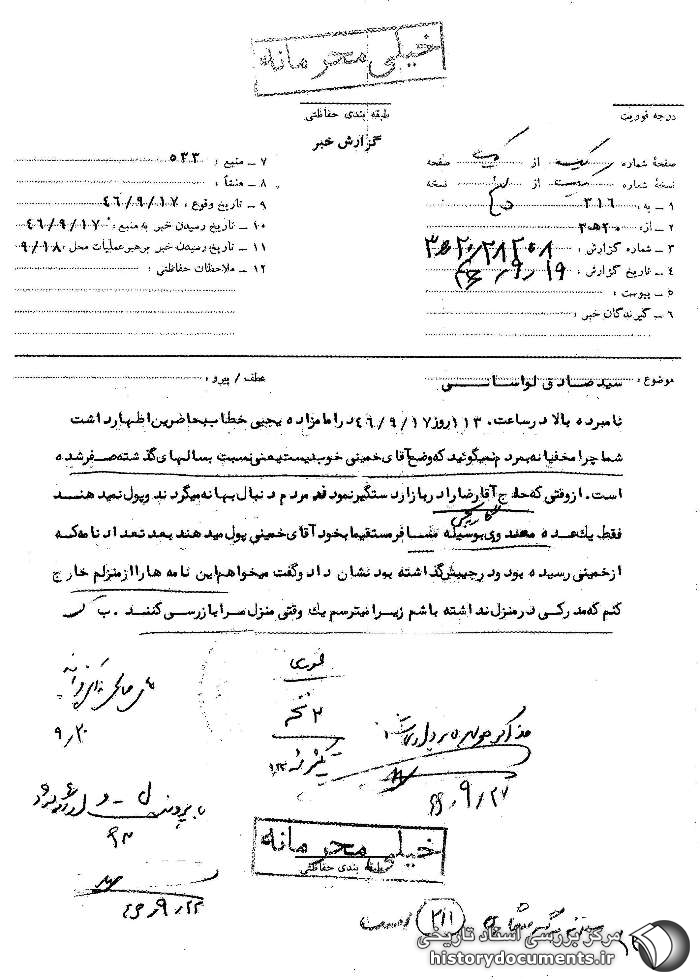 خیلی محرمانه
طبقه بندی حفاظتی
درجه فوریت
گزارش خبر
صفحهٔ شماره یک از یک صفحه
نسخهٔ شماره از نسخه
۱ ــ به : ۳۱۶
۲ ــ از : ۲۰ ه ۳
۳ ــ شماره گزارش :
۴ ــ تاریخ گزارش : ۱۹/۹/۴۶
۵ ــ پیوست :
۶ ــ گیرندگان خبر :
۷ ــ منبع : ۵۳۳
۸ ــ منشأ :
۹ ــ تاریخ وقوع : ۴۶/۹/۱۷
۱۰ ــ تاریخ رسیدن خبر به منبع : ۴۶/۹/۱۷
۱۱ ــ تاریخ رسیدن خبر برهبر عملیات محل : ۹/۱۸
۱۲ ــ ملاحظات حفاظتی :
موضوع : سید صادق لواسانی
عطف / پیرو :
نامبرده بالا در ساعت ۱۱۳۰ روز ۴۶/۹/۱۷ در امامزاده یحیی خطاب بحاضرین اظهار داشت
شما چرا مخفیانه بمردم نمیگوئید که وضع آقای خمینی خوب نیست یعنی نسبت بسالهای گذشته صفر شده
است . از وقتی که حاج آقا رضا را در بازار دستگیر نمودند مردم دنبال بهانه میگردند و پول نمیدهند
فقط یک عده معدودی بوسیله مسافر مستقیما بخود آقای خمینی پول میدهند بعد تعداد نامه که
از خمینی رسیده بود و در جیبش گذاشته بود نشان داد و گفت میخواهم این نامه ها را از منزلم خارج
کنم که مدرکی در منزل نداشته باشم زیرا میترسم یک وقتی منزل مرا بازرسی کنند .
فوری
۲ نسخه
۹/۲۰
۴۶/۹/۲۲
خیلی محرمانه
طبقه بندی حفاظتی
۲۱۱ است
مرکز بررسی اسناد تاریخی
historydocuments.ir